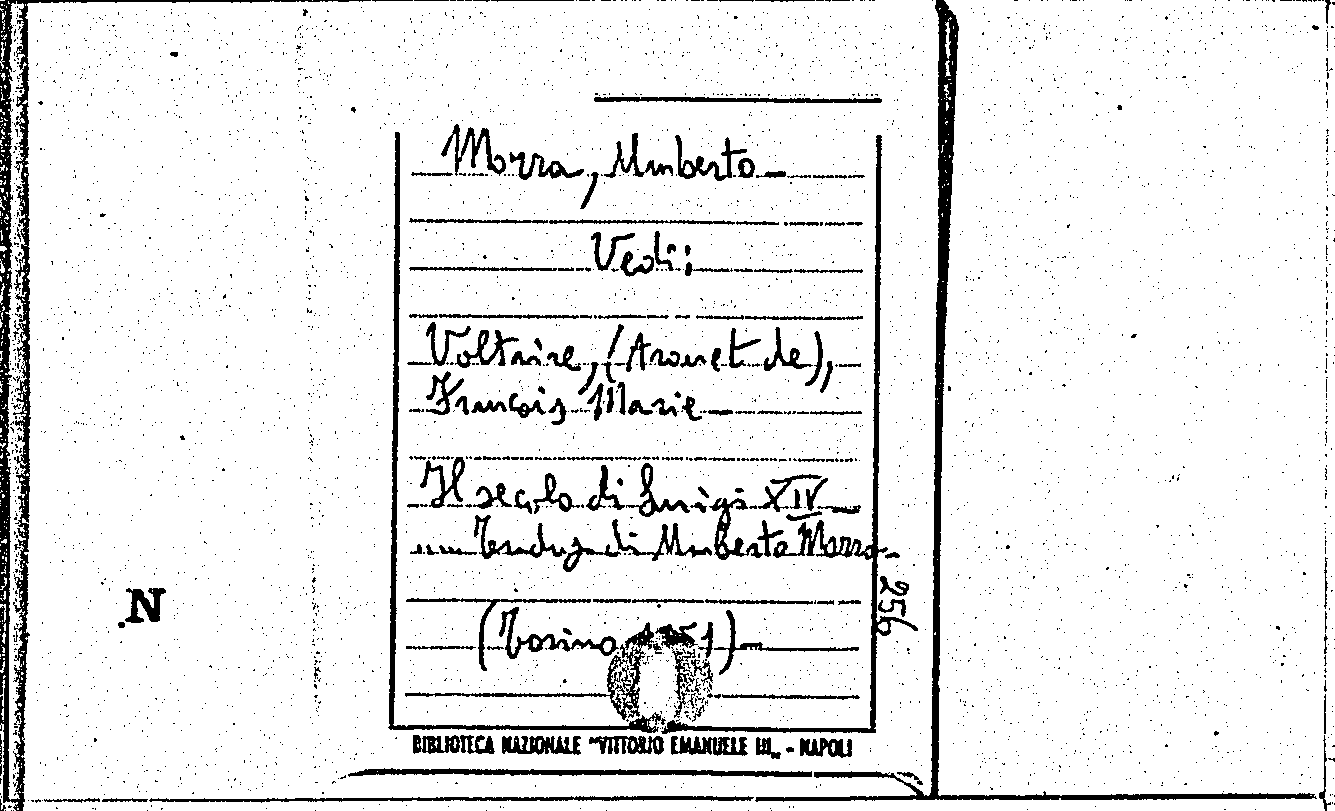 Morra, Umberto—
Vedi:
Voltaire, (Arouet de),
François Marie—
Il secolo di Luigi XIV—
.... Traduz. di Umberto Morra—
(Torino 1951)—
256
N
BIBLIOTECA NAZIONALE "VITTORIO EMANUELE III„ - NAPOLI